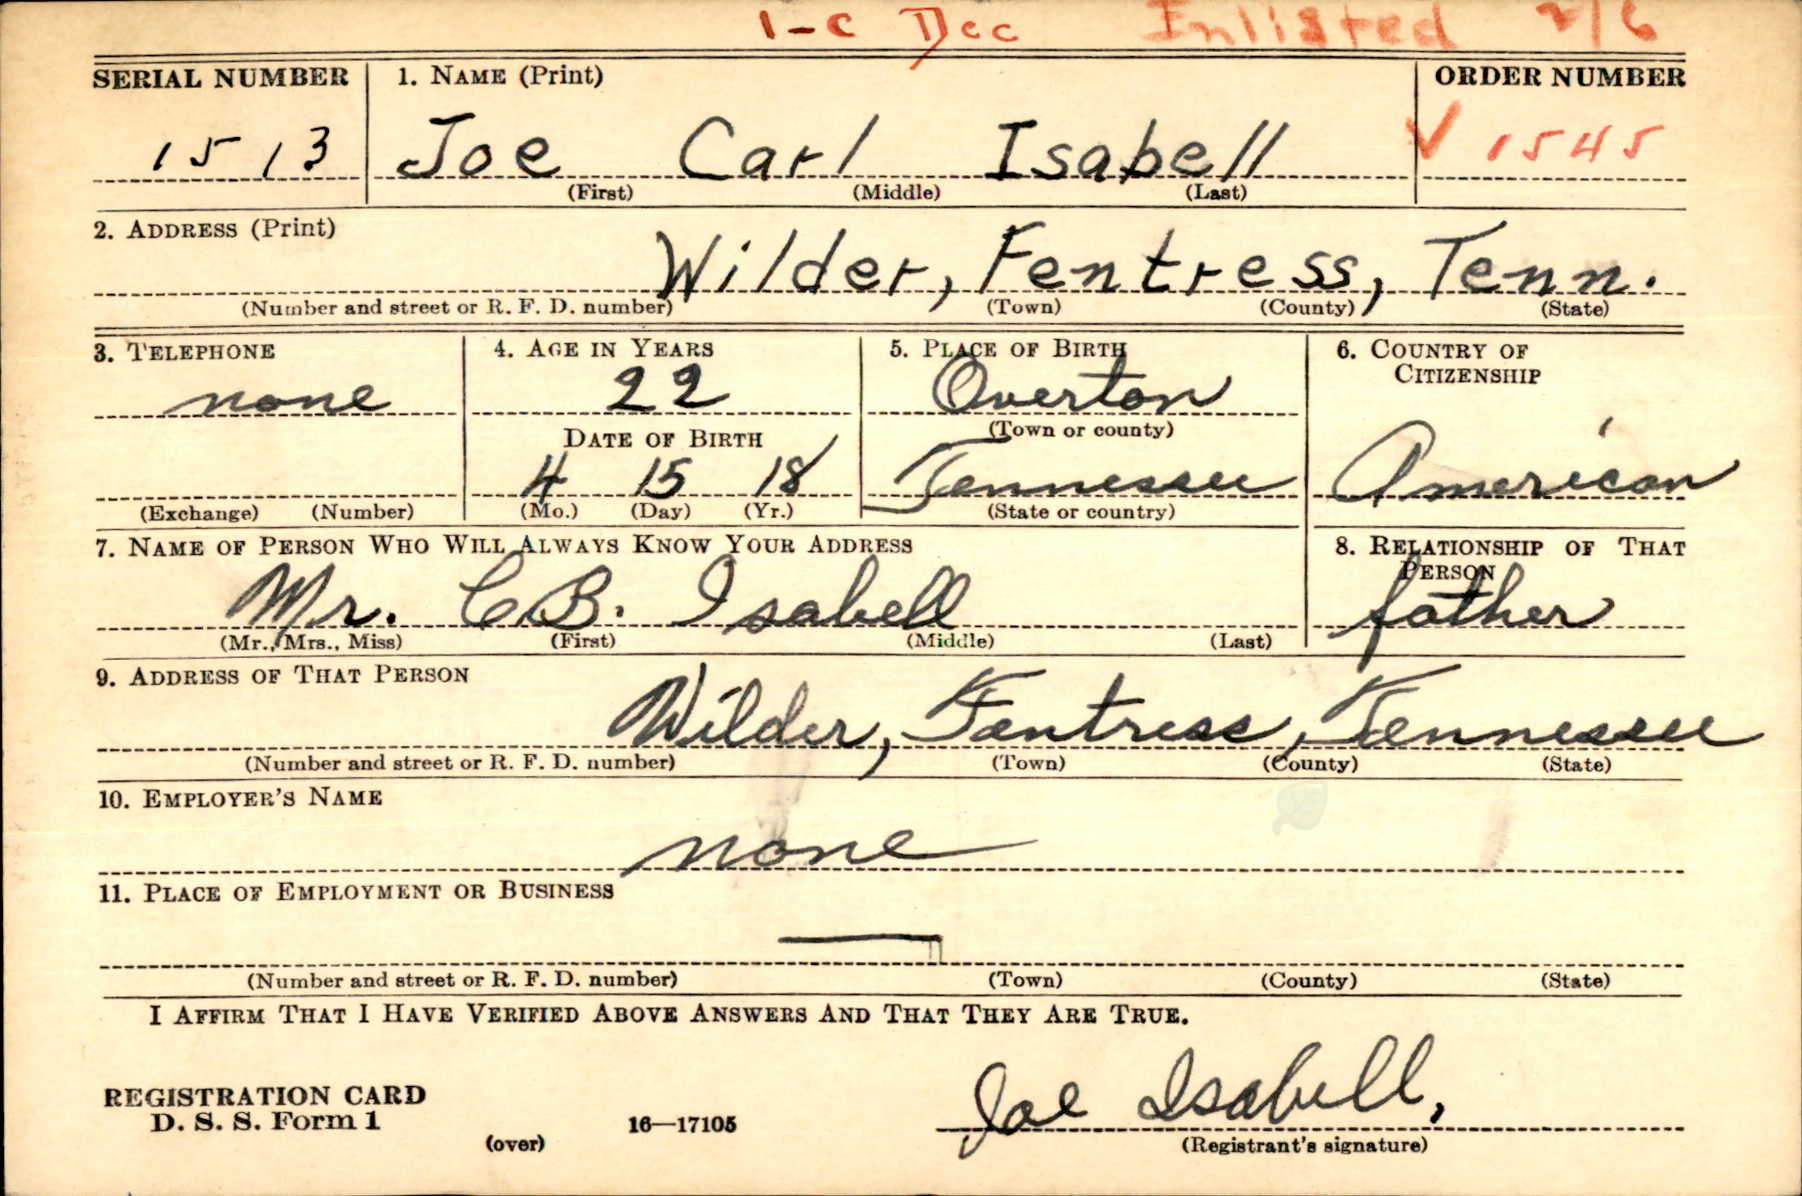 1-C Dec Inlisted 2/6
SERIAL NUMBER 1. NAME (Print) ORDER NUMBER
1513 Joe Carl Isabell 1545
(First) (Middle) (Last)
2. ADDRESS (Print)
Wilder, Fentress, Tenn.
(Number and street or R. F. D. number) (Town) (County) (State)
3. TELEPHONE 4. AGE IN YEARS 5. PLACE OF BIRTH 6. COUNTRY OF CITIZENSHIP
none 22 Overton
DATE OF BIRTH (Town or county)
4 15 18 Tennessee American
(Exchange) (Number) (Mo.) (Day) (Yr.) (State or country)
7. NAME OF PERSON WHO WILL ALWAYS KNOW YOUR ADDRESS 8. RELATIONSHIP OF THAT PERSON
Mr. C B. Isabell father
(Mr., Mrs., Miss) (First) (Middle) (Last)
9. ADDRESS OF THAT PERSON
Wilder, Fentress, Tennessee
(Number and street or R. F. D. number) (Town) (County) (State)
10. EMPLOYER'S NAME
none
11. PLACE OF EMPLOYMENT OR BUSINESS
(Number and street or R. F. D. number) (Town) (County) (State)
I AFFIRM THAT I HAVE VERIFIED ABOVE ANSWERS AND THAT THEY ARE TRUE.
Joe Isabell,
REGISTRATION CARD
D. S. S. Form 1 16—17105
(over) (Registrant's signature)